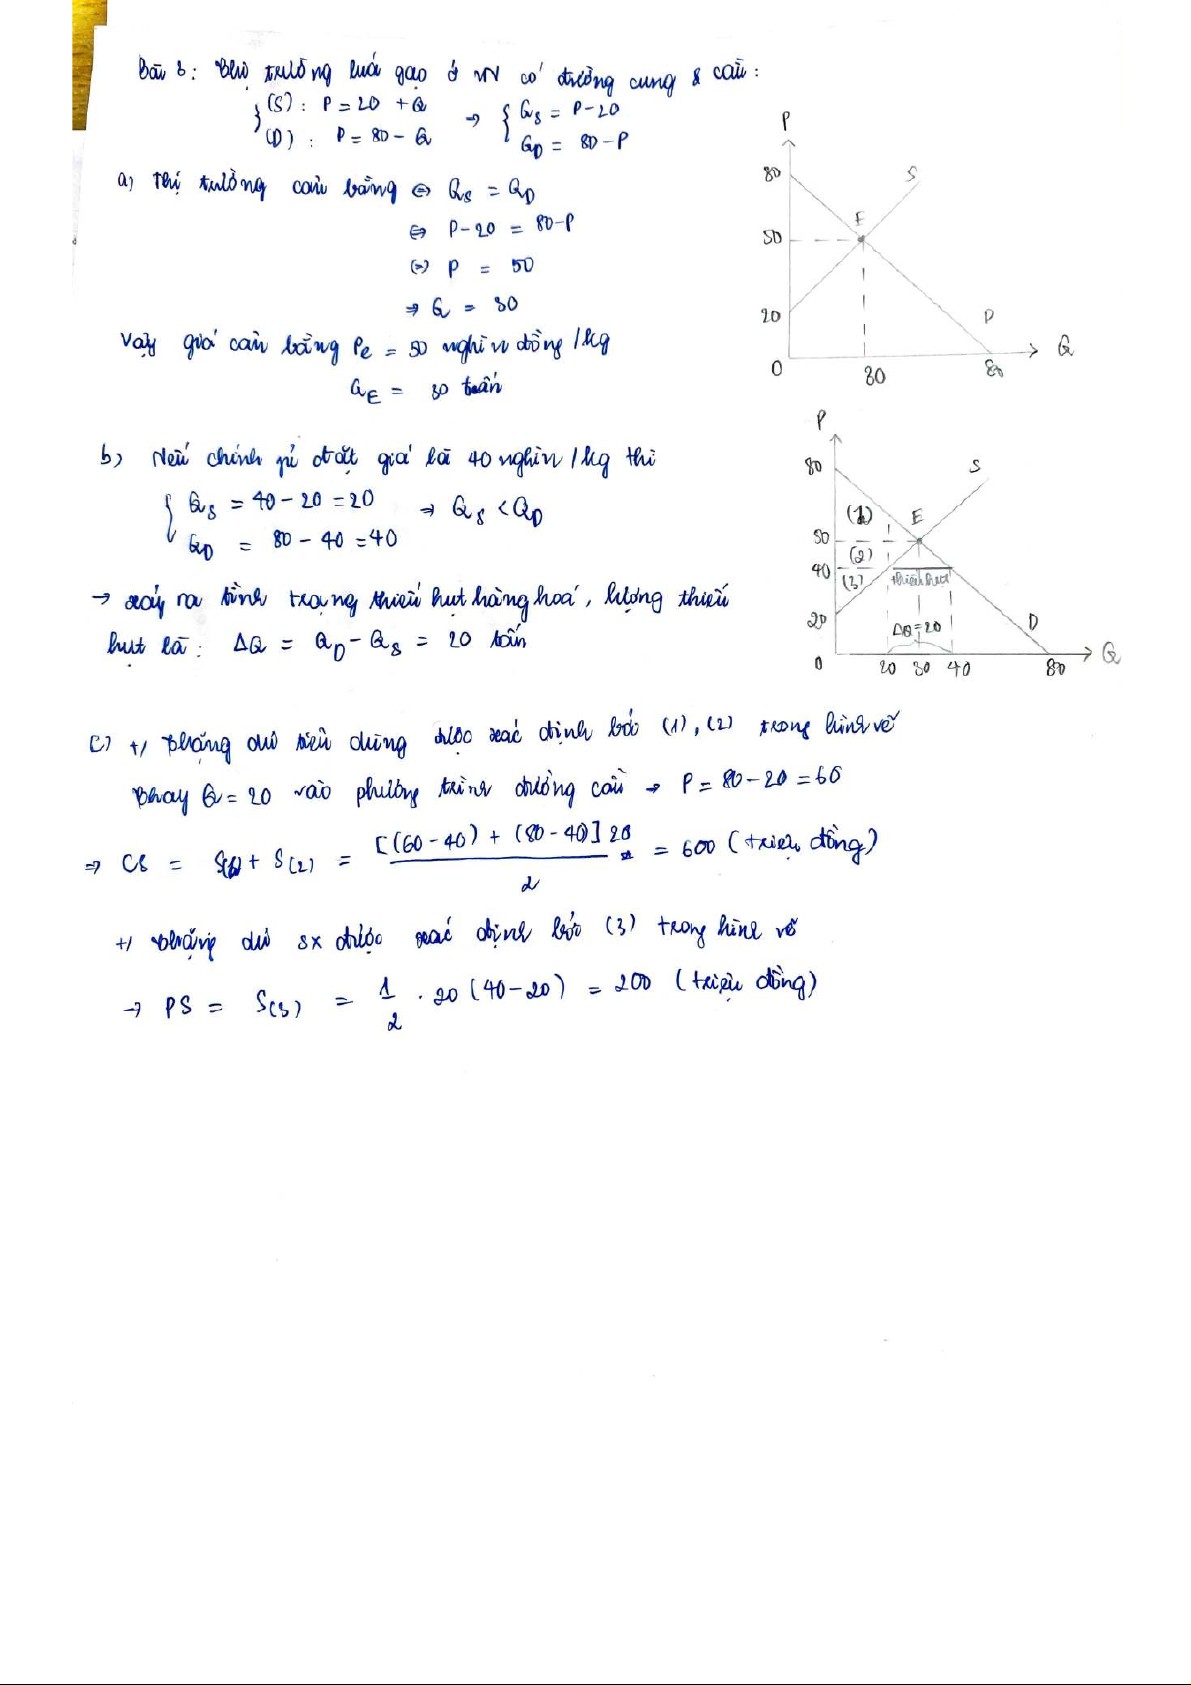 Bài 3: Thị trường lúa gạo ở VN có đường cung & cầu:
(S): P = 20 + Q
(D): P = 80 - Q
=> { Qs = P - 20
QD = 80 - P
a) Thị trường cân bằng <=> Qs = QD
<=> P - 20 = 80 - P
<=> P = 50
=> Q = 30
Vậy giá cân bằng Pe = 50 nghìn đồng/kg
QE = 30 tấn
P
80
S
E
50
20
D
0
30
80
Q
b) Nếu chính phủ đặt giá là 40 nghìn/kg thì
{ Qs = 40 - 20 = 20
QD = 80 - 40 = 40
=> Qs < QD
-> xảy ra tình trạng thiếu hụt hàng hoá, lượng thiếu
hụt là: ΔQ = QD - Qs = 20 tấn
P
80
S
(1)
E
50
(2)
40
(3)
thiếu hụt
20
ΔQ = 20
D
0
20 30 40
80
Q
c) +) Thặng dư tiêu dùng được xác định bởi (1), (2) trong hình vẽ
Thay Q = 20 vào phương trình đường cầu -> P = 80 - 20 = 60
=> CS = S(1) + S(2) = [(60 - 40) + (80 - 40)] 20 / 2 = 600 (triệu đồng)
+) Thặng dư sx được xác định bởi (3) trong hình vẽ
-> PS = S(3) = 1/2 . 20 (40 - 20) = 200 (triệu đồng)